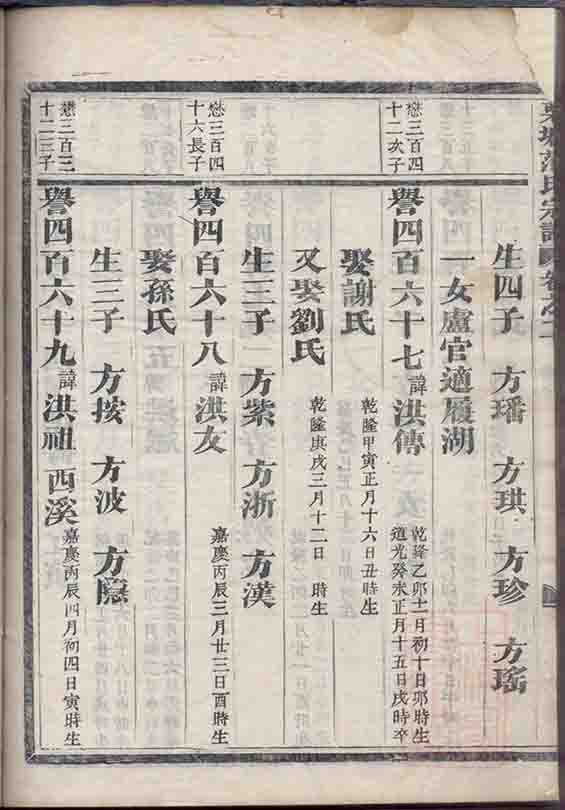 范氏宗譜 卷之二
生四子 方璠 方琪 方珍 方瑤
一女盧官適履湖
懋三百四十二次子
譽四百六十七 諱洪傳 乾隆乙卯十一月初十日卯時生 道光癸未正月十五日戌時卒
娶謝氏 乾隆甲寅正月十六日丑時生
又娶劉氏 乾隆庚戌三月十二日 時生
生三子 方紫 方浙 方漢
懋三百四十六長子
譽四百六十八 諱洪友 嘉慶丙辰三月廿三日酉時生
娶孫氏
生三子 方按 方波 方隱
懋三百三十二三子
譽四百六十九 諱洪祖 西溪 嘉慶丙辰四月初四日寅時生